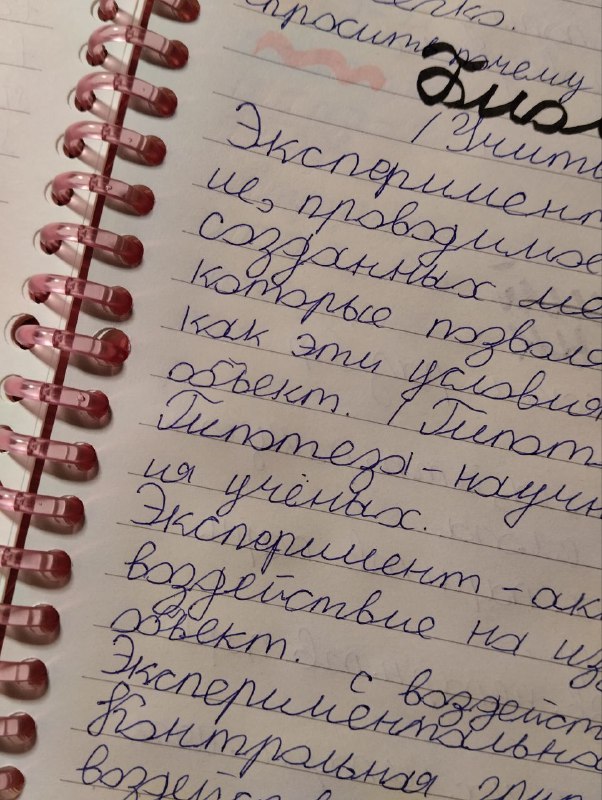 спросить почему
Биол
/Учите
Эксперимент
ие, проводимое
созданных
которые позвол
как эти условия
объект. /Гипот
Гипотеза - научн
ия учёных.
Эксперимент - ак
воздействие на из
объект.
с воздейст
Экспериментальна
Контрольная
воздейс